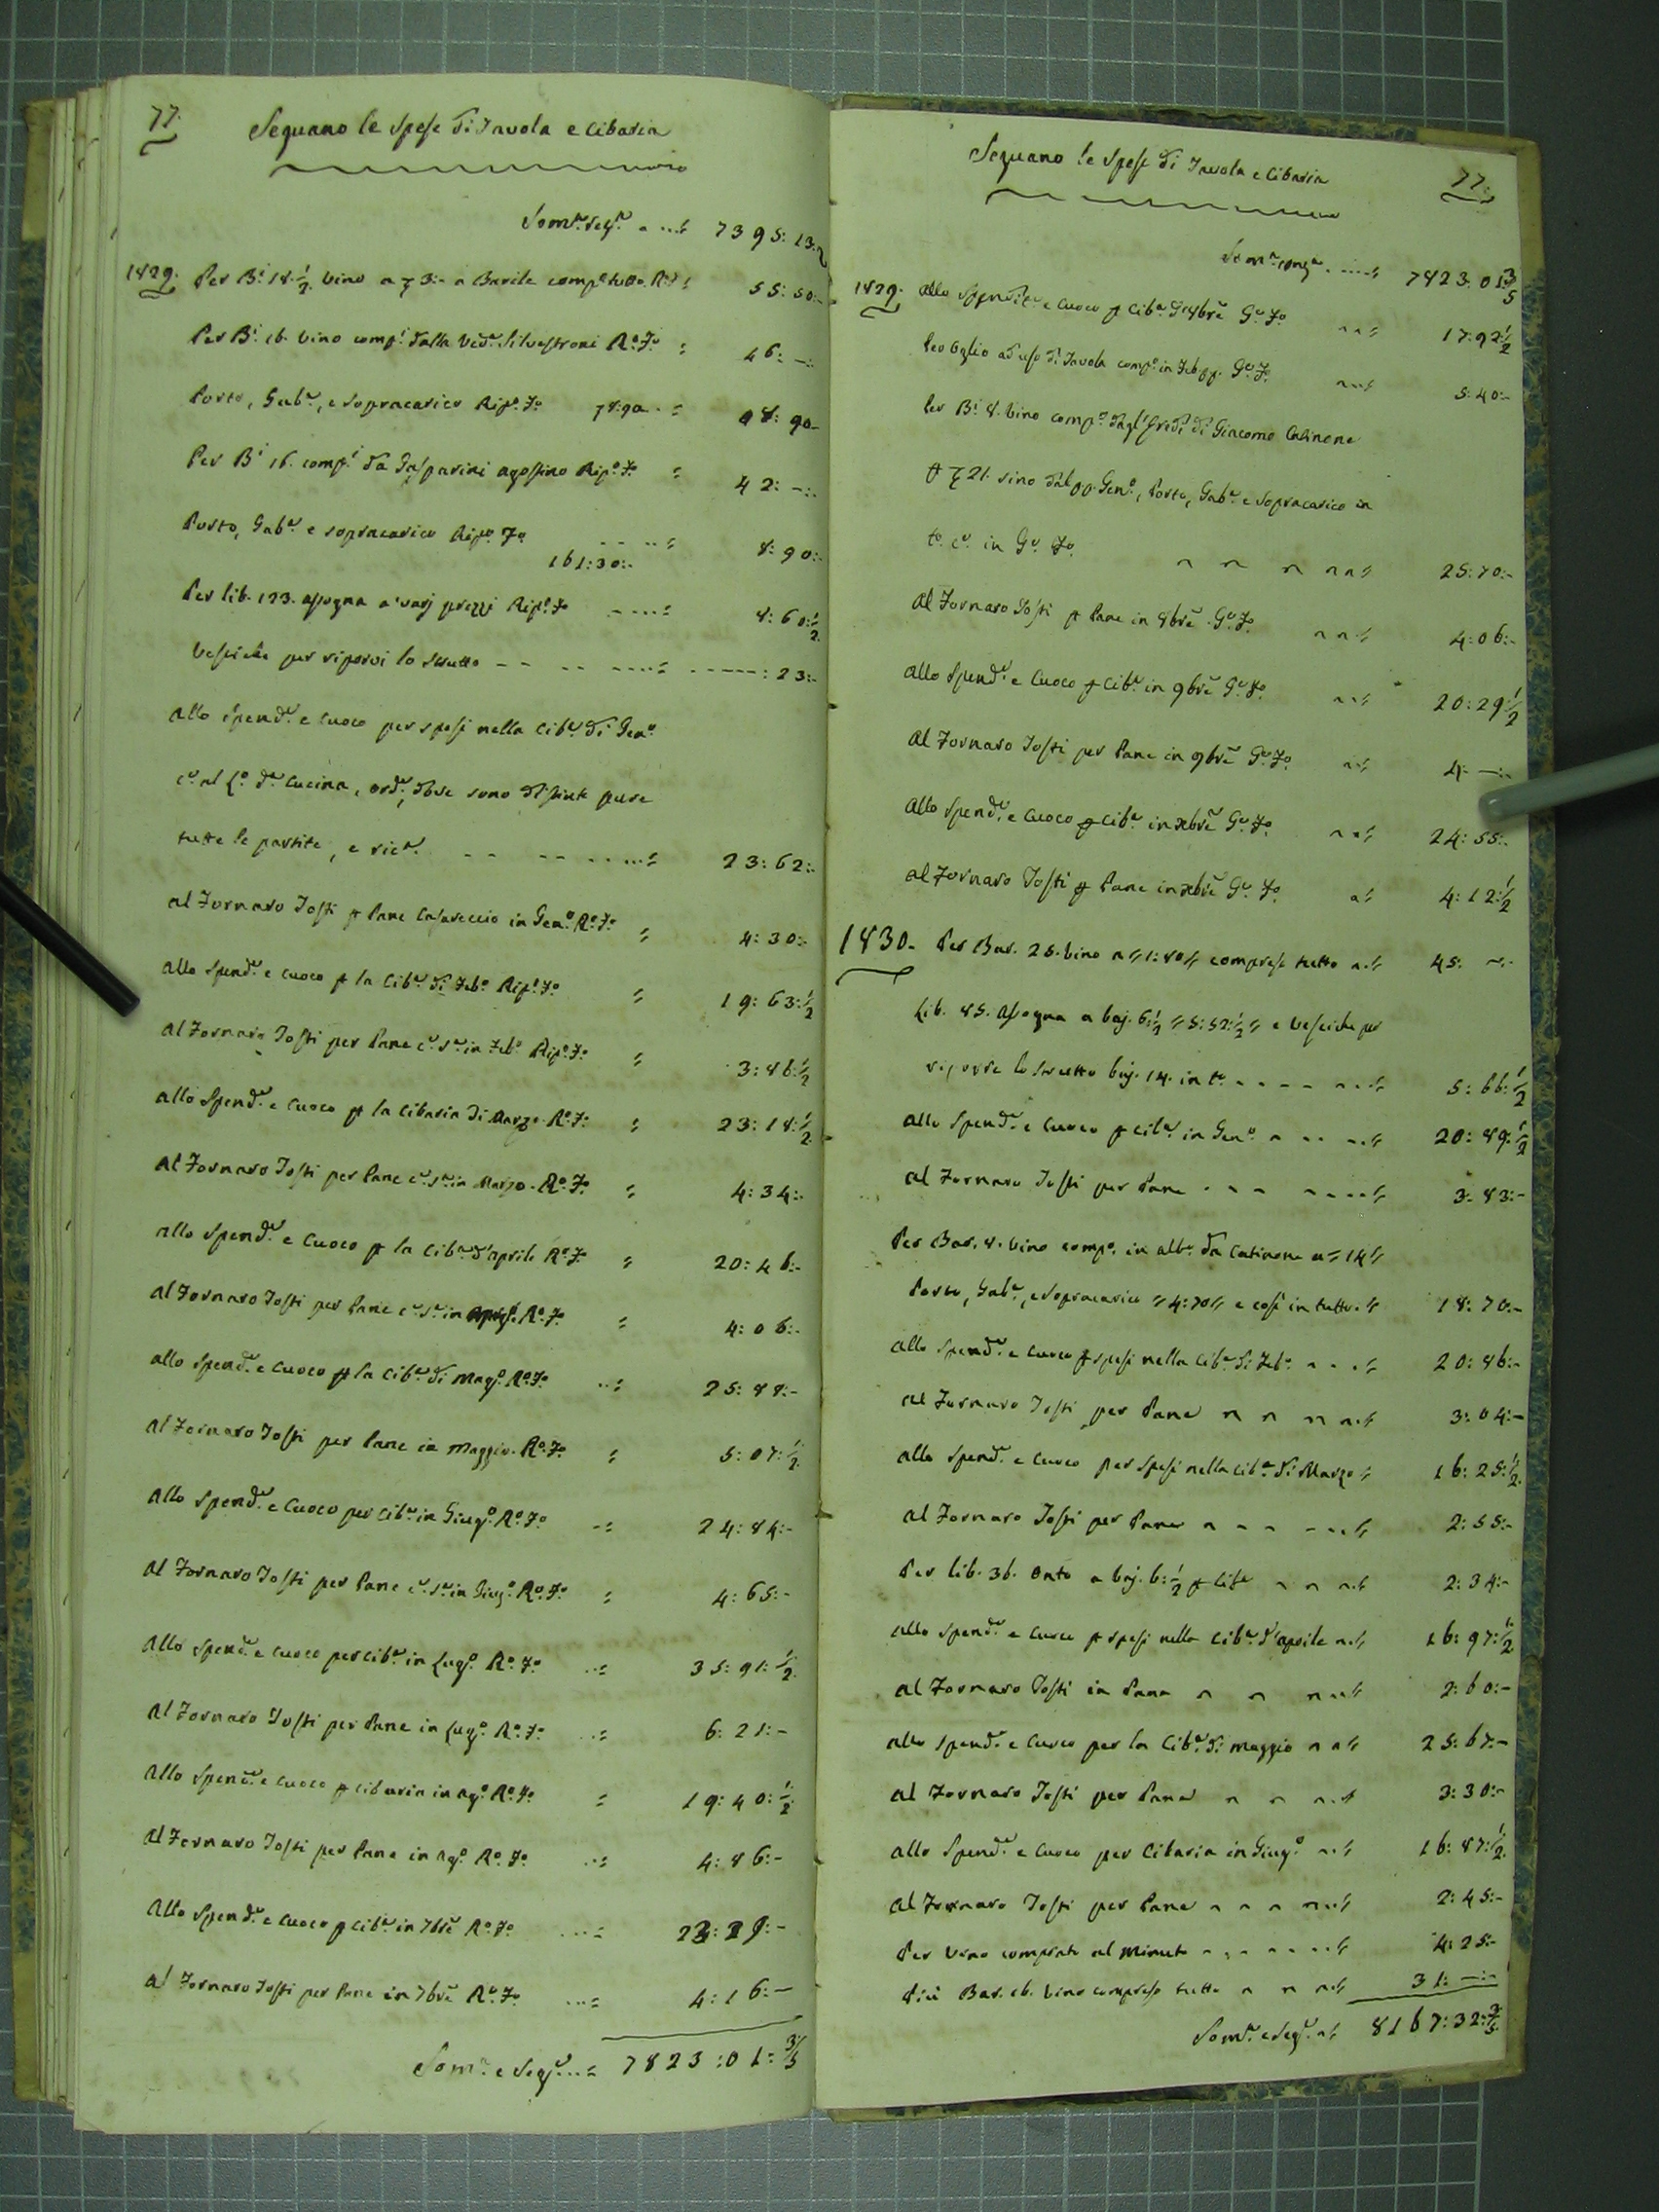 77.
Seguano le Spese di Tavola e Cibaria
Som.a seg.e 7395: 13:
1829. Per B.i 18 1/2 vino a 3:- a Barile comp.o tutto R.o 55: 50:-
Per B.i 16. vino comp.i dalla Ved.a Silvestroni R.o F.o 46: -:
Porto, Gab.a, e sopracarico Rip.o F.o 98: 90-
Per B.i 16. comp.i da Gasparini agostino Rip.o F.o 42: -:
Porto, Gab.a e sopracarico Rip.o F.o 8: 90:-
161:30:-
Per lib. 123. assogna a varj prezzi Rip.o F.o 8: 60: 1/2
Vesciche per riporvi lo Strutto : 23:-
allo Spend.e e Cuoco per spesi nella Cib.a di Gen.o
c.e al L.o d.a Cucina, ord.a, dove sono distinte pure
tutte le partite, e ric.e 23: 62:-
al Fornaro Tosti p Pane Casareccio in Gen.o R.o F.o 4: 30:-
allo Spend.e e Cuoco p la Cib.a di Feb.o Rip.o F.o 19: 63: 1/2
al Fornaro Tosti per Pane c.e s.a in Feb.o Rip.o F.o 3: 86: 1/2
allo Spend.e e Cuoco p la Cibaria di Marzo R.o F.o 23: 18: 1/2
al Fornaro Tosti per Pane c.e s.a in Marzo R.o F.o 4: 34:-
allo Spend.e e Cuoco p la Cib.a d'aprile R.o F.o 20: 46:-
al Fornaro Tosti per Pane c.e s.a in R.o F.o 4: 06:-
allo Spend.e e Cuoco p la Cib.a di Mag.o R.o F.o 25: 88:-
al Fornaro Tosti per Pane in Maggio R.o F.o 5: 07: 1/2
allo Spend.e e Cuoco per Cib.a in Giug.o R.o F.o 24: 84:-
al Fornaro Tosti per Pane c.e s.a in Giug.o R.o F.o 4: 65:-
allo Spend.e e Cuoco per Cib.a in Lug.o R.o F.o 35: 91: 1/2
al Fornaro Tosti per Pane in Lug.o R.o F.o 6: 21:-
allo Spend.e e Cuoco p Cibaria in ag.o R.o F.o 19: 40: 1/2
al Fornaro Tosti per Pane in ag.o R.o F.o 4: 86:-
allo Spend.e e Cuoco p Cib.a in 7bre R.o F.o
al Fornaro Tosti per Pane in 7bre R.o F.o 4: 16:-
Som.a e Seg.e 7823: 01: 3/5
77.
Seguano le Spese di Tavola e Cibaria
Som.a 7823: 01 3/5
1829. allo Spendit.e e Cuoco p Cib.a 8bre G.e F.o 17: 92 1/2
Per Oglio ad uso di Tavola comp.o in Feb G.e F.o 5: 40:-
Per B.i 8. Vino comp.o dagl'Eredi di Giacomo Catinone
21. sino dal Gen.o, Porto, Gab.a e Sopracarico in
t.o c.e in G.e F.o 25: 70:-
al Fornaro Tosti p Pane in 8bre G.e F.o 4: 06:-
allo Spend.e e Cuoco p Cib.a in 9bre G.e F.o 20: 29 1/2
al Fornaro Tosti per Pane in 9bre G.e F.o 4: -:
allo Spend.e e Cuoco p Cib.a in xbre G.e F.o 24: 55:
al Fornaro Tosti p Pane in xbre G.e F.o 4: 12: 1/2
1830. Per Bar. 25. vino a 1: 80 compreso tutto 45: -:
Lib. 85. assogna a baj. 6: 1/2 5: 52: 1/2 e Vesciche per
riporre lo Strutto baj. 14. in t.o 5: 66: 1/2
allo Spend.e e Cuoco p Cib.a in Gen.o 20: 89: 1/2
al Fornaro Tosti per Pane 3: 83:-
Per Bar. 8. vino comp.o in alb.o da Catinone a 14
Porto, Gab.a, e Sopracarico 4: 70 e così in tutto 18: 70:-
allo Spend.e e Cuoco p spesi nella Cib.a di Feb.o 20: 86:-
al Fornaro Tosti per Pane 3: 04:-
allo Spend.e e Cuoco per spesi nella Cib.a di Marzo 16: 25: 1/2
al Fornaro Tosti per Pane 2: 55:-
Per lib. 36. Onto a baj. 6: 1/2 p lib.a 2: 34:-
allo Spend.e e Cuoco p spesi nella Cib.a d'aprile 16: 97: 1/2
al Fornaro Tosti in Pane 2: 60:-
allo Spend.e e Cuoco per la Cib.a di Maggio 25: 67:-
al Fornaro Tosti per Pane 3: 30:-
allo Spend.e e Cuoco per Cibaria in Giug.o 16: 87: 1/2
al Fornaro Tosti per Pane 2: 45:-
Per Vino comprato al Minuto 4: 25:-
Più Bar. 16. Vino compreso tutto 31: -:
Som.a e Seg.e 8167: 32: